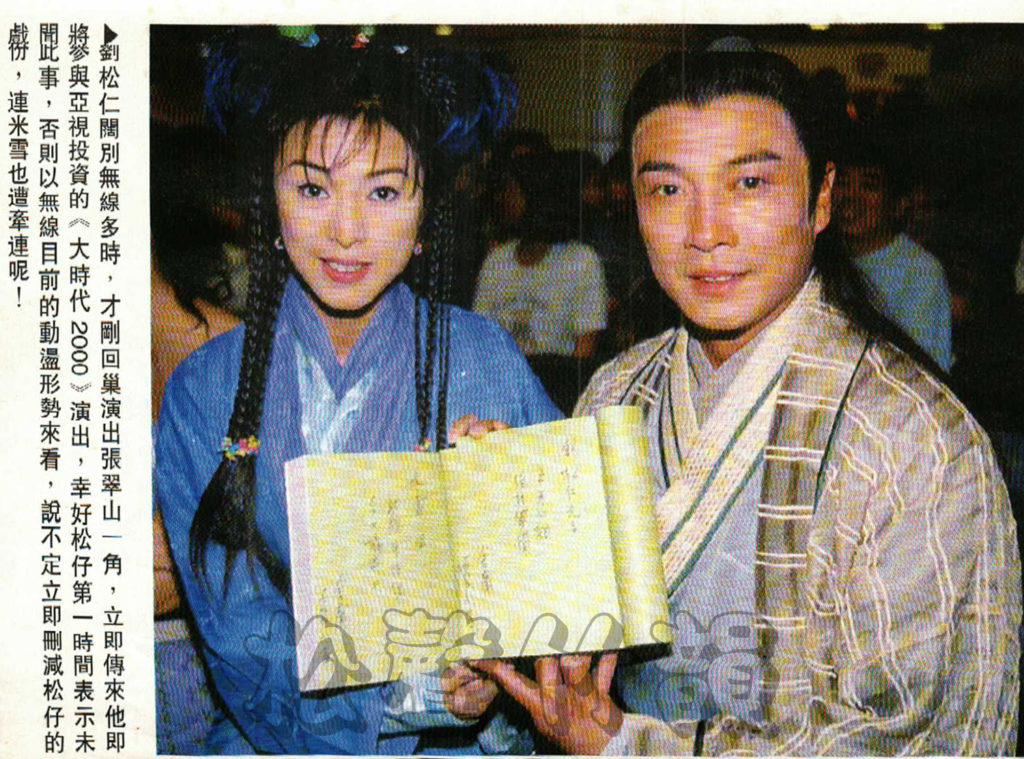 ▶劉松仁闊別無線多時，才剛回巢演出張翠山一角，立即傳來他即
將參與亞視投資的《大時代2000》演出，幸好松仔第一時間表示未
聞此事，否則以無線目前的動盪形勢來看，說不定立即刪減松仔的
戲份，連米雪也遭牽連呢！
松
竹